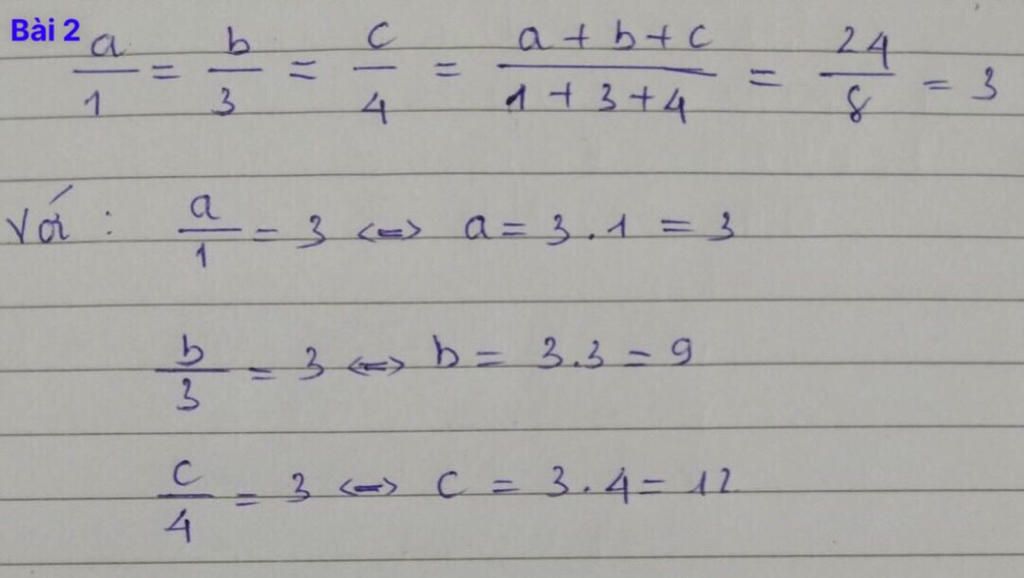 Bài 2
a/1 = b/3 = c/4 = (a + b + c)/(1 + 3 + 4) = 24/8 = 3
Với : a/1 = 3 <=> a = 3.1 = 3
b/3 = 3 <=> b = 3.3 = 9
c/4 = 3 <=> c = 3.4 = 12